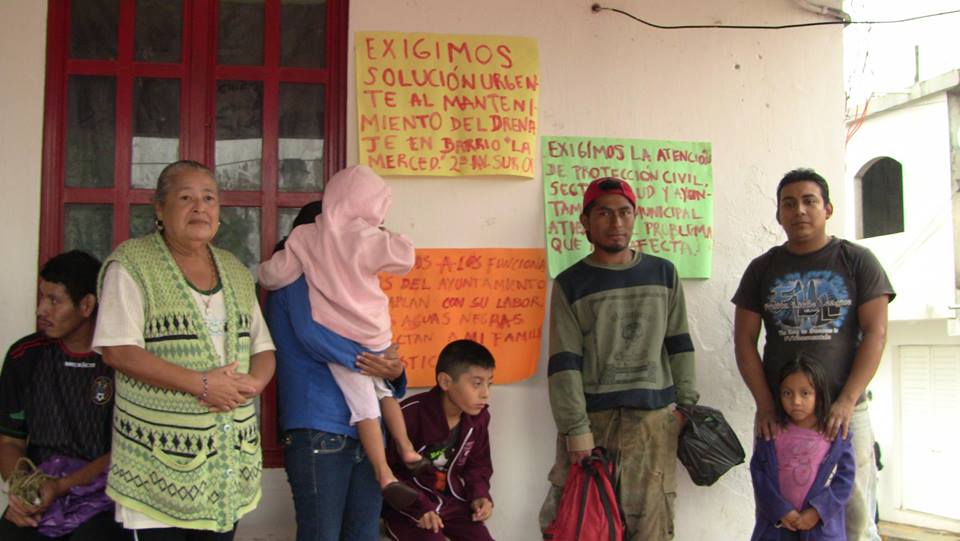 EXIGIMOS
SOLUCIÓN URGEN-
TE AL MANTENI-
MIENTO DEL DRENA
JE EN BARRIO "LA
MERCED." 2ª AV. SUR OT
EXIGIMOS LA ATENCIÓN
DE PROTECCIÓN CIVIL.
SECT UD Y AYUN-
TAM MUNICIPAL
ATIE L PROBLEMA
QUE FECTA.
OS A LOS FUNCIONA
S DEL AYUNTAMIENTO
MPLAN CON SU LABOR.
S AGUAS NEGRAS
CTAN A MI FAMIL
STIC